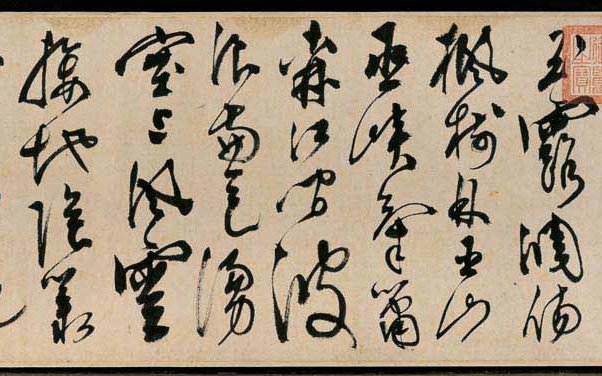 玉露凋傷
楓樹林巫山
巫峽氣蕭
森江間波
浪兼天湧
塞上風雲
接地陰叢